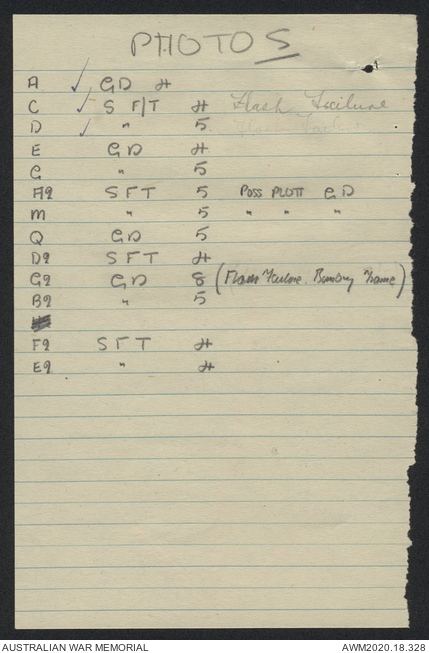 PHOTOS
A ✓ GD 4
C ✓ S F/T 4 Flash Failure
D ✓ " 5
E GD 4
G " 5
A2 SFT 5 POSS PLOTT GD
M " 5 " " "
Q GD 5
D2 SFT 4
G2 GD 8 (Flash Failure. Bombing Frame)
B2 " 5
F2 SFT 4
E2 " 4
AUSTRALIAN WAR MEMORIAL
AWM2020.18.328